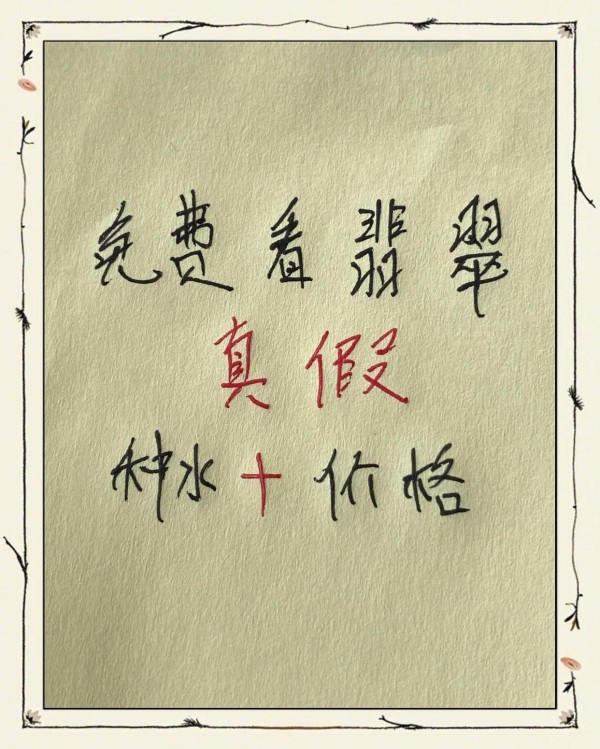 免费看翡翠
真假
种水+价格